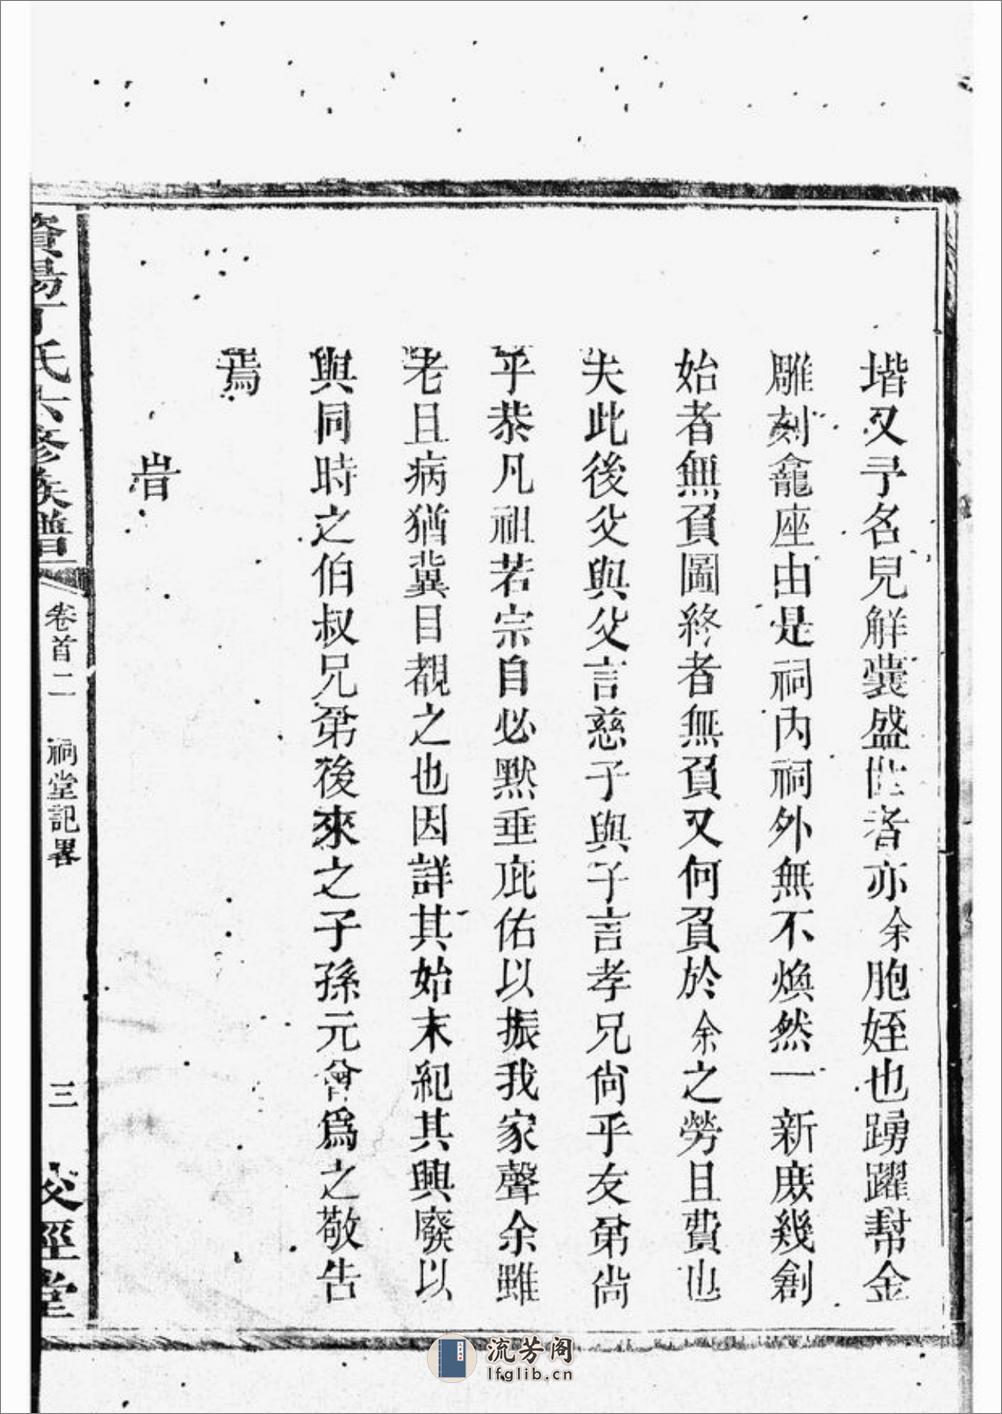 堦又予名兒解囊盛世者亦余胞姪也踴躍幫金
雕刻龕座由是祠內祠外無不煥然一新庶幾創
始者無負圖終者無負又何負於余之勞且費也
夫此後父與父言慈子與子言孝兄尙乎友弟尙
乎恭凡祖若宗自必默垂庇佑以振我家聲余雖
老且病猶冀目覩之也因詳其始末紀其興廢以
與同時之伯叔兄弟後來之子孫元會爲之敬告
焉
旹
資陽丁氏六修族譜
卷首二
祠堂記畧
三
校經堂
流芳阁
lfglib.cn